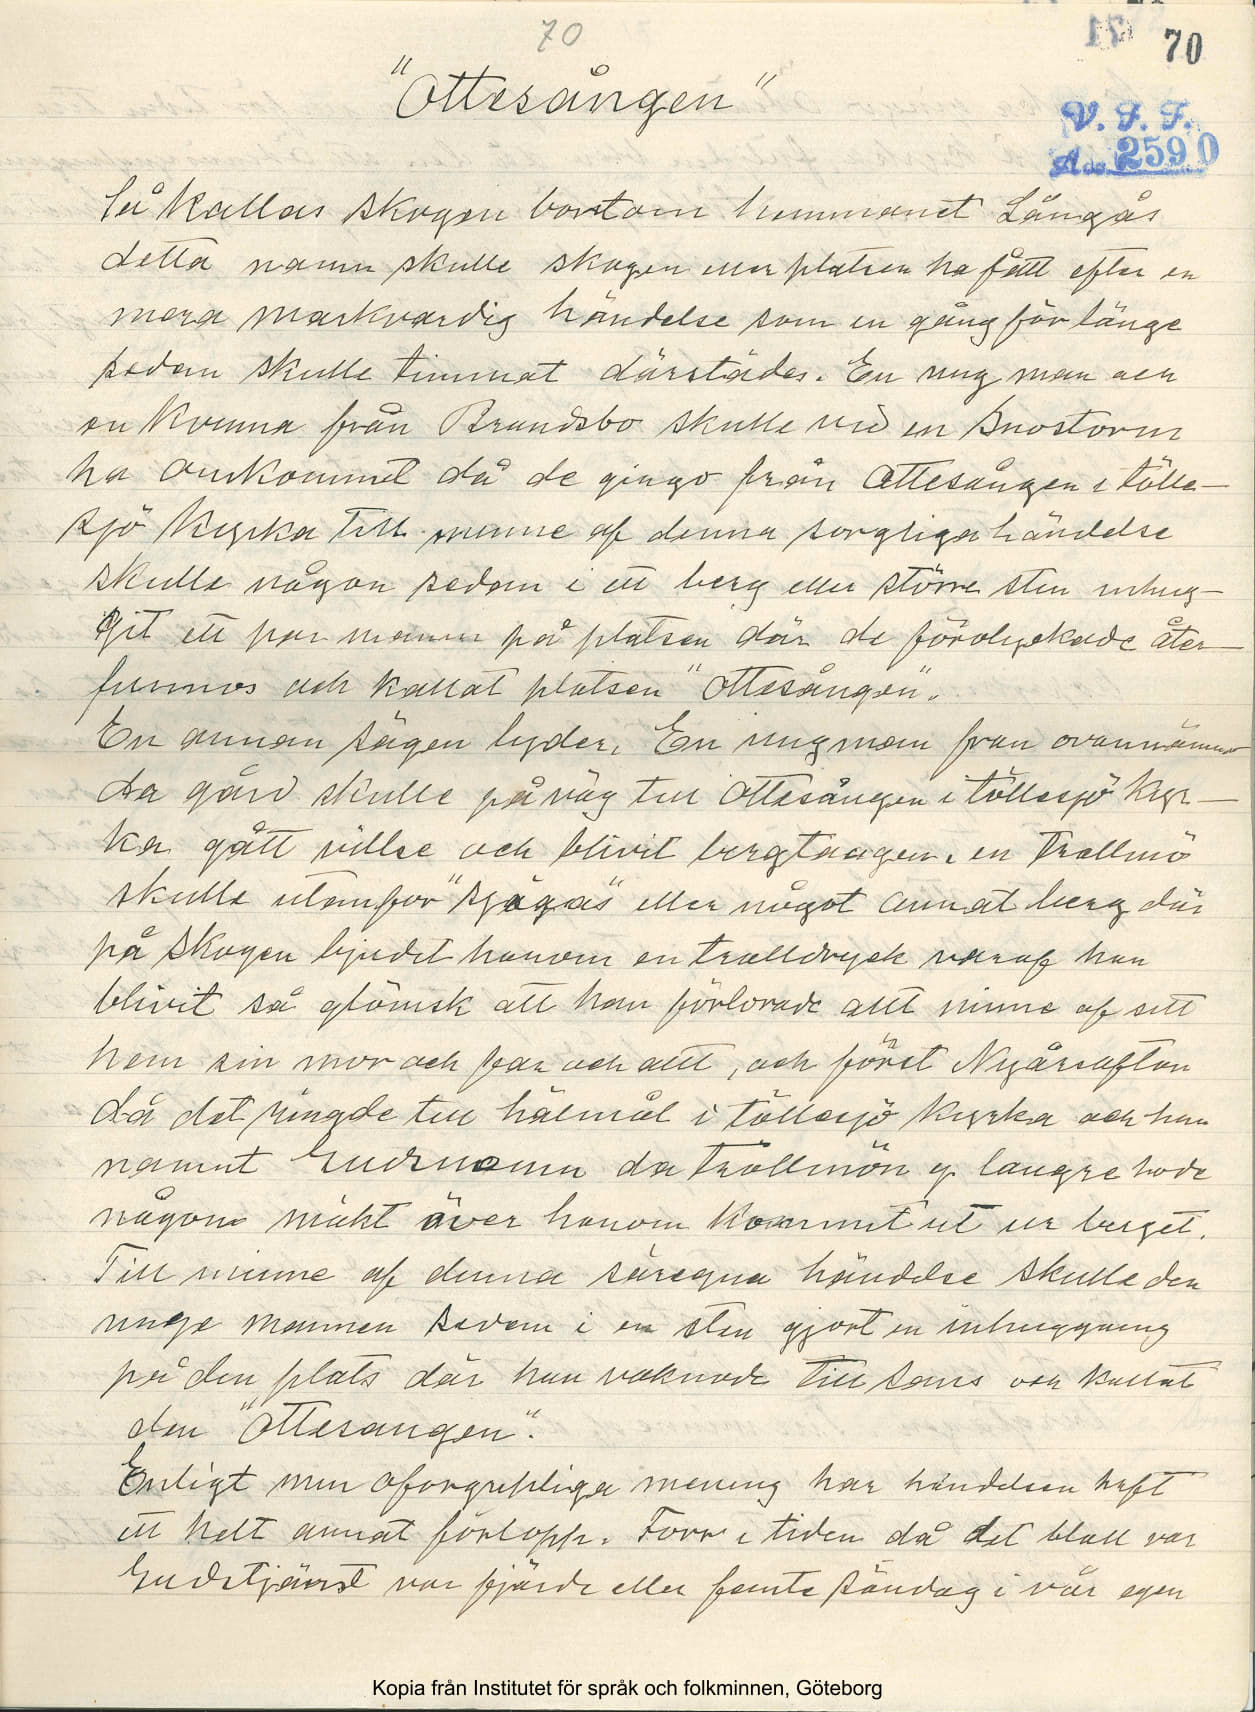 70
70
"Ottesången"
V. F. F.
Ads. 2590
Så kallas skogen bortom hemmanet Långås
detta namn skulle skogen eller platsen ha fått efter en
mera markvardig händelse som en gång för länge
sedan skulle timmat därstädes. En ung man och
en kvinna från Brandsbo skulle vid en snostorm
ha omkommit då de gingo från Ottesången i Tölle-
sjö kyrka till minne af denna sorgliga händelse
skulle någon sedan i ett berg eller större sten inhug-
git ett par namn på platsen där de förolyckade åter-
funnos och kallat platsen "Ottesången".
En annan sägen lyder. En ung man fran ovannämn
da gård skulle på väg till Ottesången i Töllesjö kyr-
ka gått villse och blivit bergtaagen. en Trollmö
skulle utanfor "Sjögås" eller något annat berg där
på skogen bjudit honom en trolldryck varaf han
blivit så glömsk att han förlorade allt minne af sitt
hem sin mor och far och allt, och först Nyårsafton
då det ringde till hälmål i Töllesjö kyrka och han
namnt Gudsnamn da Trollmön ej langre hade
någon makt över honom kommit ut ur berget.
Till minne af denna säregna händelse skulle den
unge mannen sedan i en sten gjort en inhuggning
på den plats där han vaknade till sans och kallat
den "Ottesangen".
Enligt min oforgripliga mening har händelsen haft
ett helt annat förlopp. Forr i tiden då det blott var
Gudstjänst var fjärde eller femte söndag i vår egen
Kopia från Institutet för språk och folkminnen, Göteborg